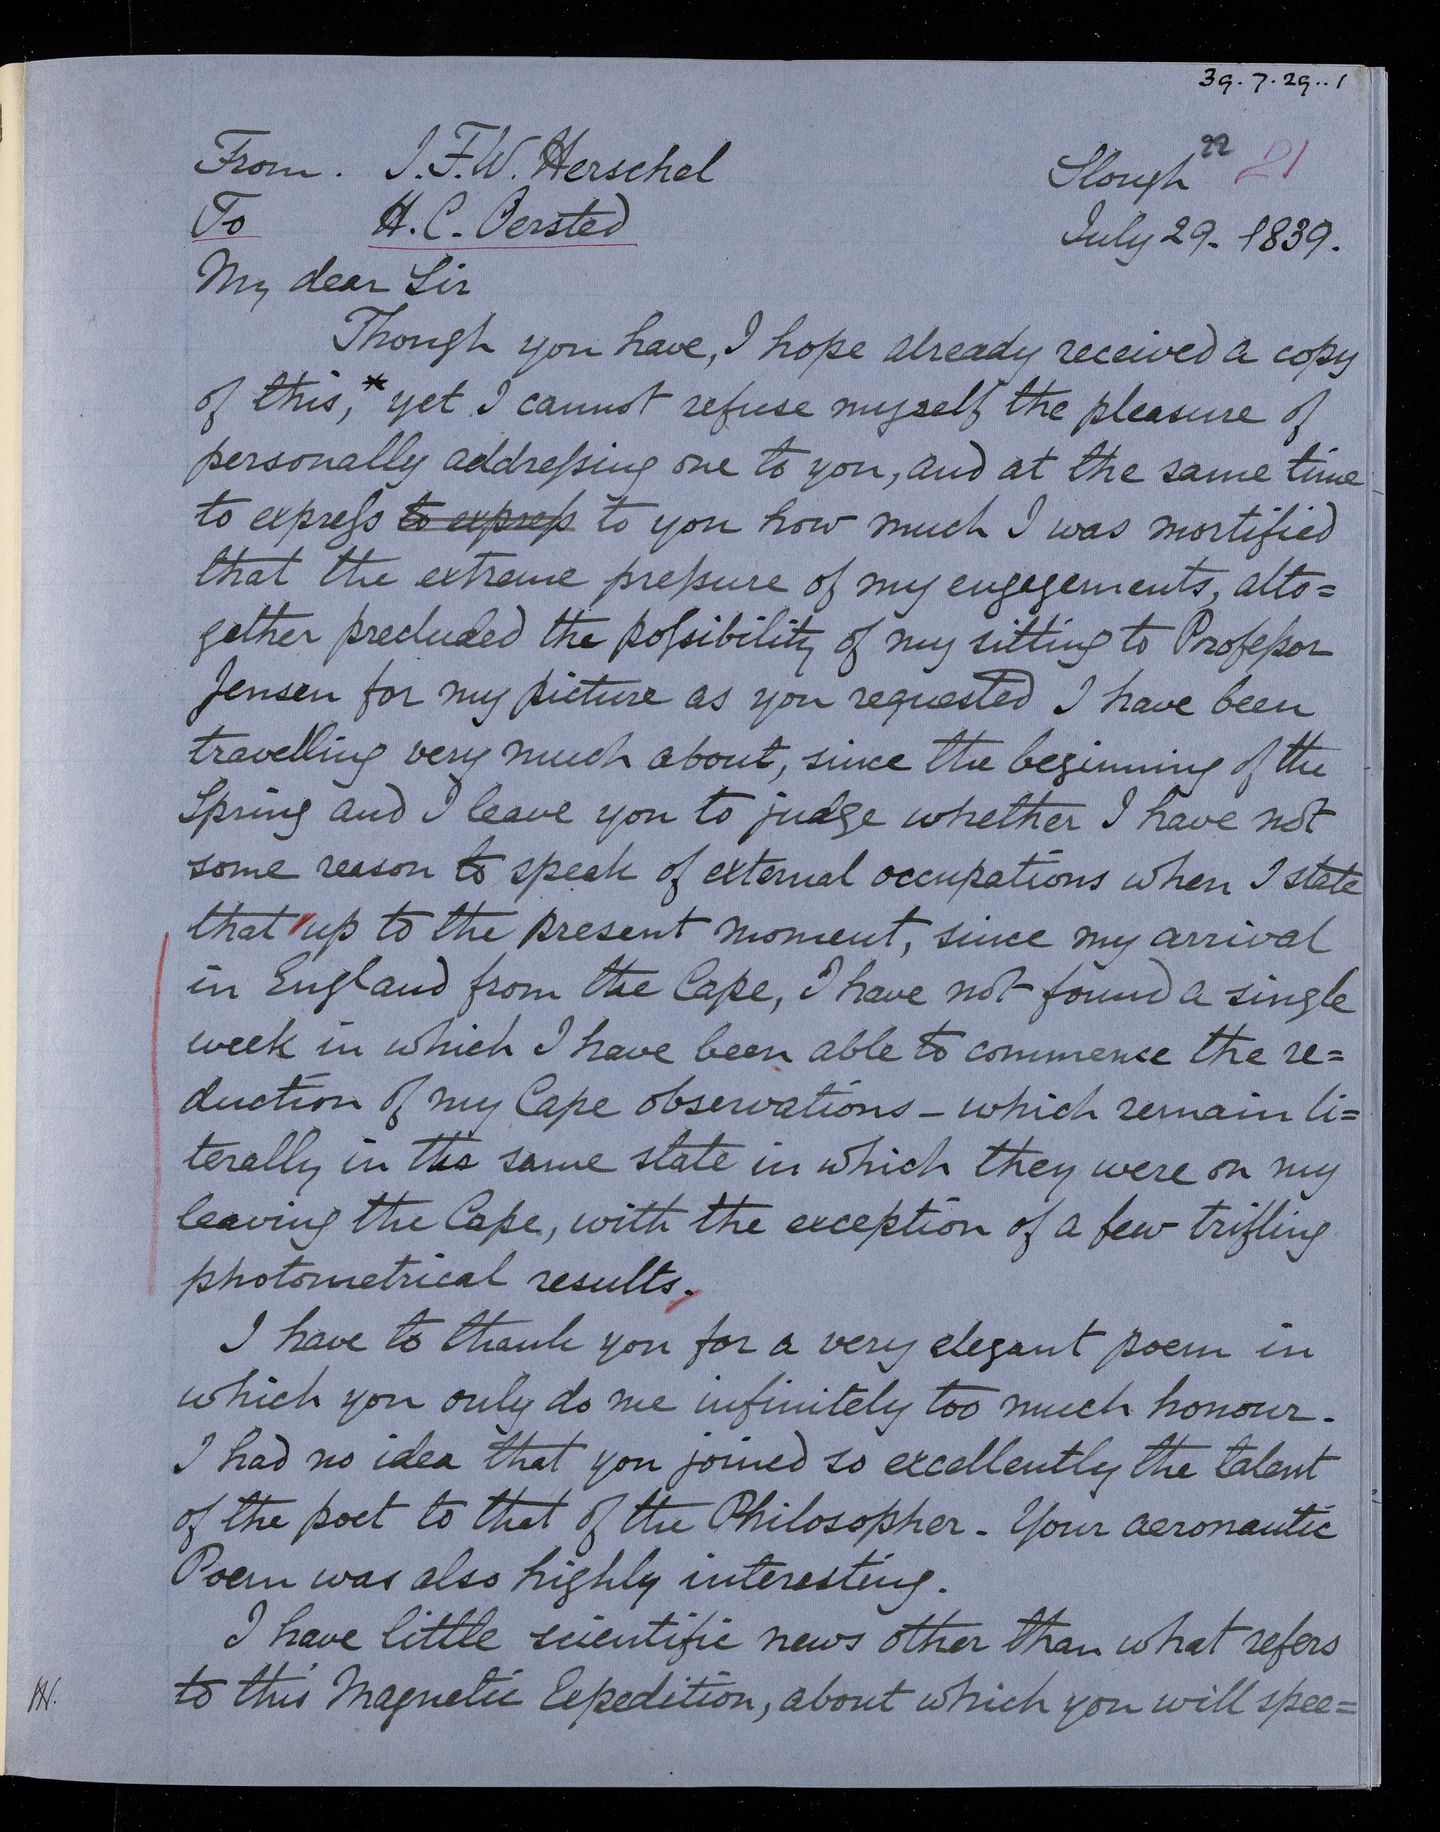 39.7.29..1
From. J.F.W. Herschel
22 21
Slough
To H.C. Oersted
July 29. 1839.
My dear Sir
Though you have, I hope already received a copy
of this,* yet I cannot refuse myself the pleasure of
personally addreſsing one to you, and at the same time
to expreſs to expreſs to you how much I was mortified
that the extreme preſsure of my engagements, alto=
gether precluded the poſsibility of my sitting to Profeſsor
Jensen for my picture as you requested I have been
travelling very much about, since the beginning of the
Spring and I leave you to judge whether I have not
some reason to speak of external occupations when I state
that up to the present moment, since my arrival
in England from the Cape, I have not found a single
week in which I have been able to commence the re=
duction of my Cape observations – which remain li=
terally in the same state in which they were on my
leaving the Cape, with the exception of a few trifling
photometrical results.
I have to thank you for a very elegant poem in
which you only do me infinitely too much honour.
I had no idea that you joined so excellently the talent
of the poet to that of the Philosopher. Your aeronautic
Poem was also highly interesting.
I have little scientific news other than what refers
to this Magnetic Expedition, about which you will spee=